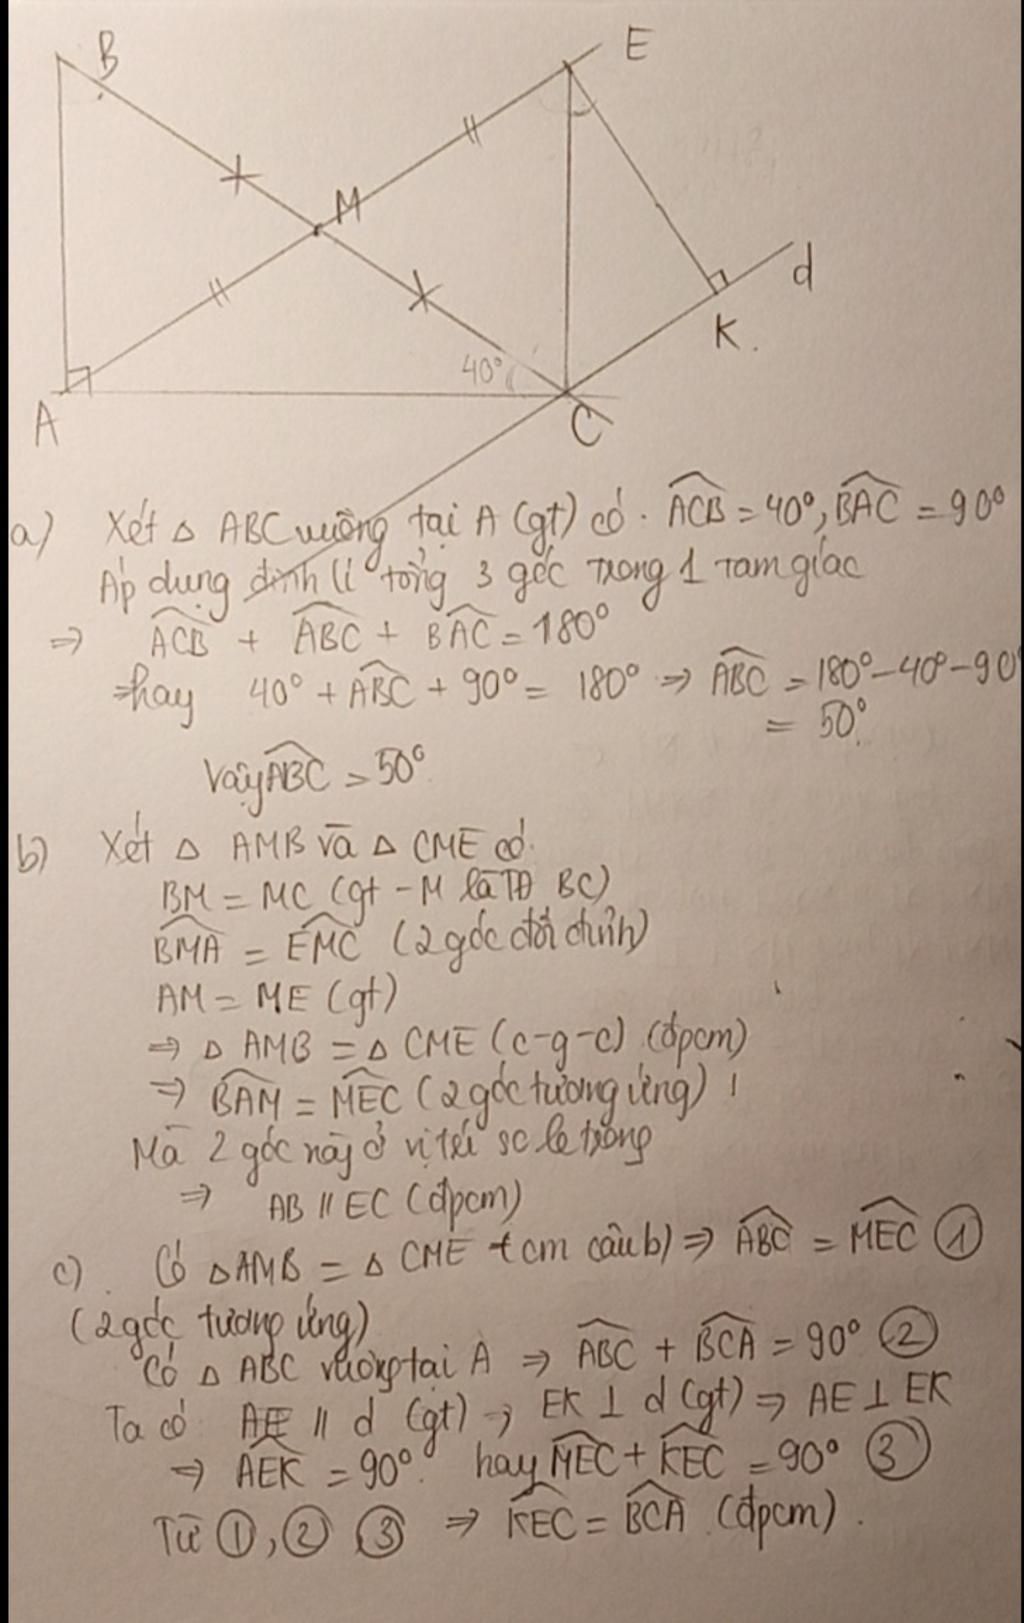 B
E
M
d
K.
40°
A
C
a) Xét △ ABC vuông tại A (gt) có. ACB = 40°, BAC = 90°
Áp dụng định lí tổng 3 góc trong 1 tam giác
⇒ ACB + ABC + BAC = 180°
⇒hay 40° + ABC + 90° = 180° ⇒ ABC = 180°-40°-90°
= 50°.
Vậy ABC = 50°
b) Xét △ AMB và △ CME có.
BM = MC (gt - M là TĐ BC)
BMA = EMC (2 góc đối đỉnh)
AM = ME (gt)
⇒ △ AMB = △ CME (c-g-c) (đpcm)
⇒ BAM = MEC (2 góc tương ứng)
Mà 2 góc này ở vị trí so le trong
⇒ AB // EC (đpcm)
c) Có △AMB = △ CME (cm câu b) ⇒ ABC = MEC ①
(2 góc tương ứng)
Có △ ABC vuông tại A ⇒ ABC + BCA = 90° ②
Ta có AE // d (gt) , EK ⊥ d (gt) ⇒ AE ⊥ EK
⇒ AEK = 90°. hay MEC + KEC = 90° ③
Từ ①, ② ③ ⇒ KEC = BCA (đpcm).